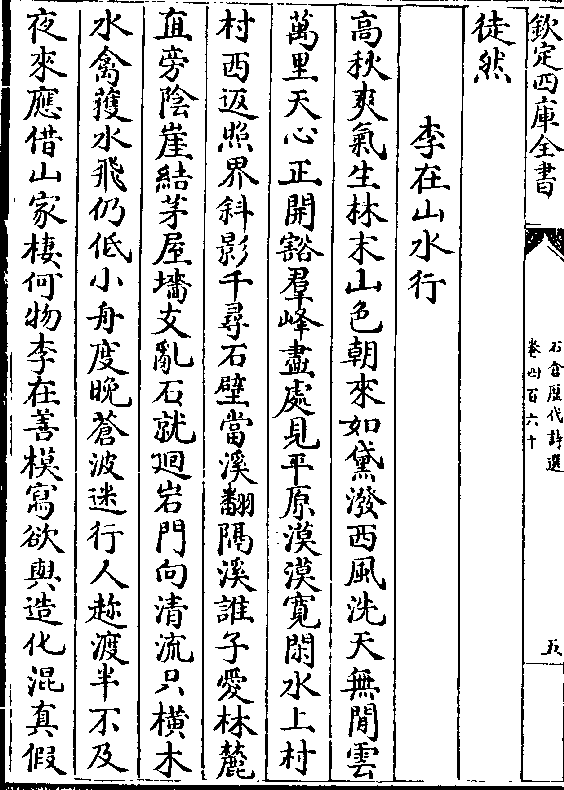 欽定四庫全書
石倉歷代詩選
卷四百六十
五
徒然
李在山水行
高秋爽氣生林末山色朝來如黛潑西風洗天無閒雲
萬里天心正開豁羣峰盡處見平原漠漠寛閑水上村
村西返照界斜影千尋石壁當溪翻隔溪誰子愛林麓
直旁陰崖結茅屋墻攴亂石就廻岩門向清流只橫木
水禽蒦水飛仍低小舟度晚蒼波迷行人趂渡半不及
夜來應借山家棲何物李在善模寫欲與造化混真假